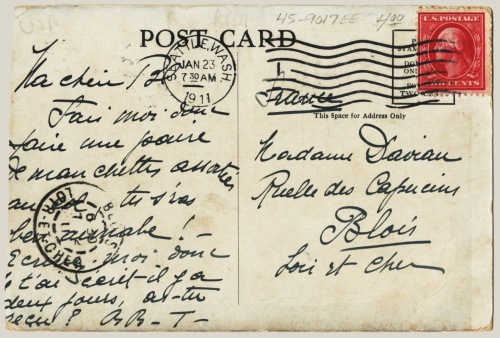 45-9017EE 4.00
POST CARD
SEATTLE, WASH.
JAN 23
7 30 AM
1911
U.S. POSTAGE
CENTS
France
This Space for Address Only
Ma chère
Fais moi donc
faire une paire
de manchettes assorties
au tu s'ras
ben aimable!
Ecris moi donc
j t'ai écrit il y a
deux jours, as-tu
reçu? BB-T-
LOIR-ET-CHER
Madame Davian
Ruelle des Capucins
Blois
Loir et Cher